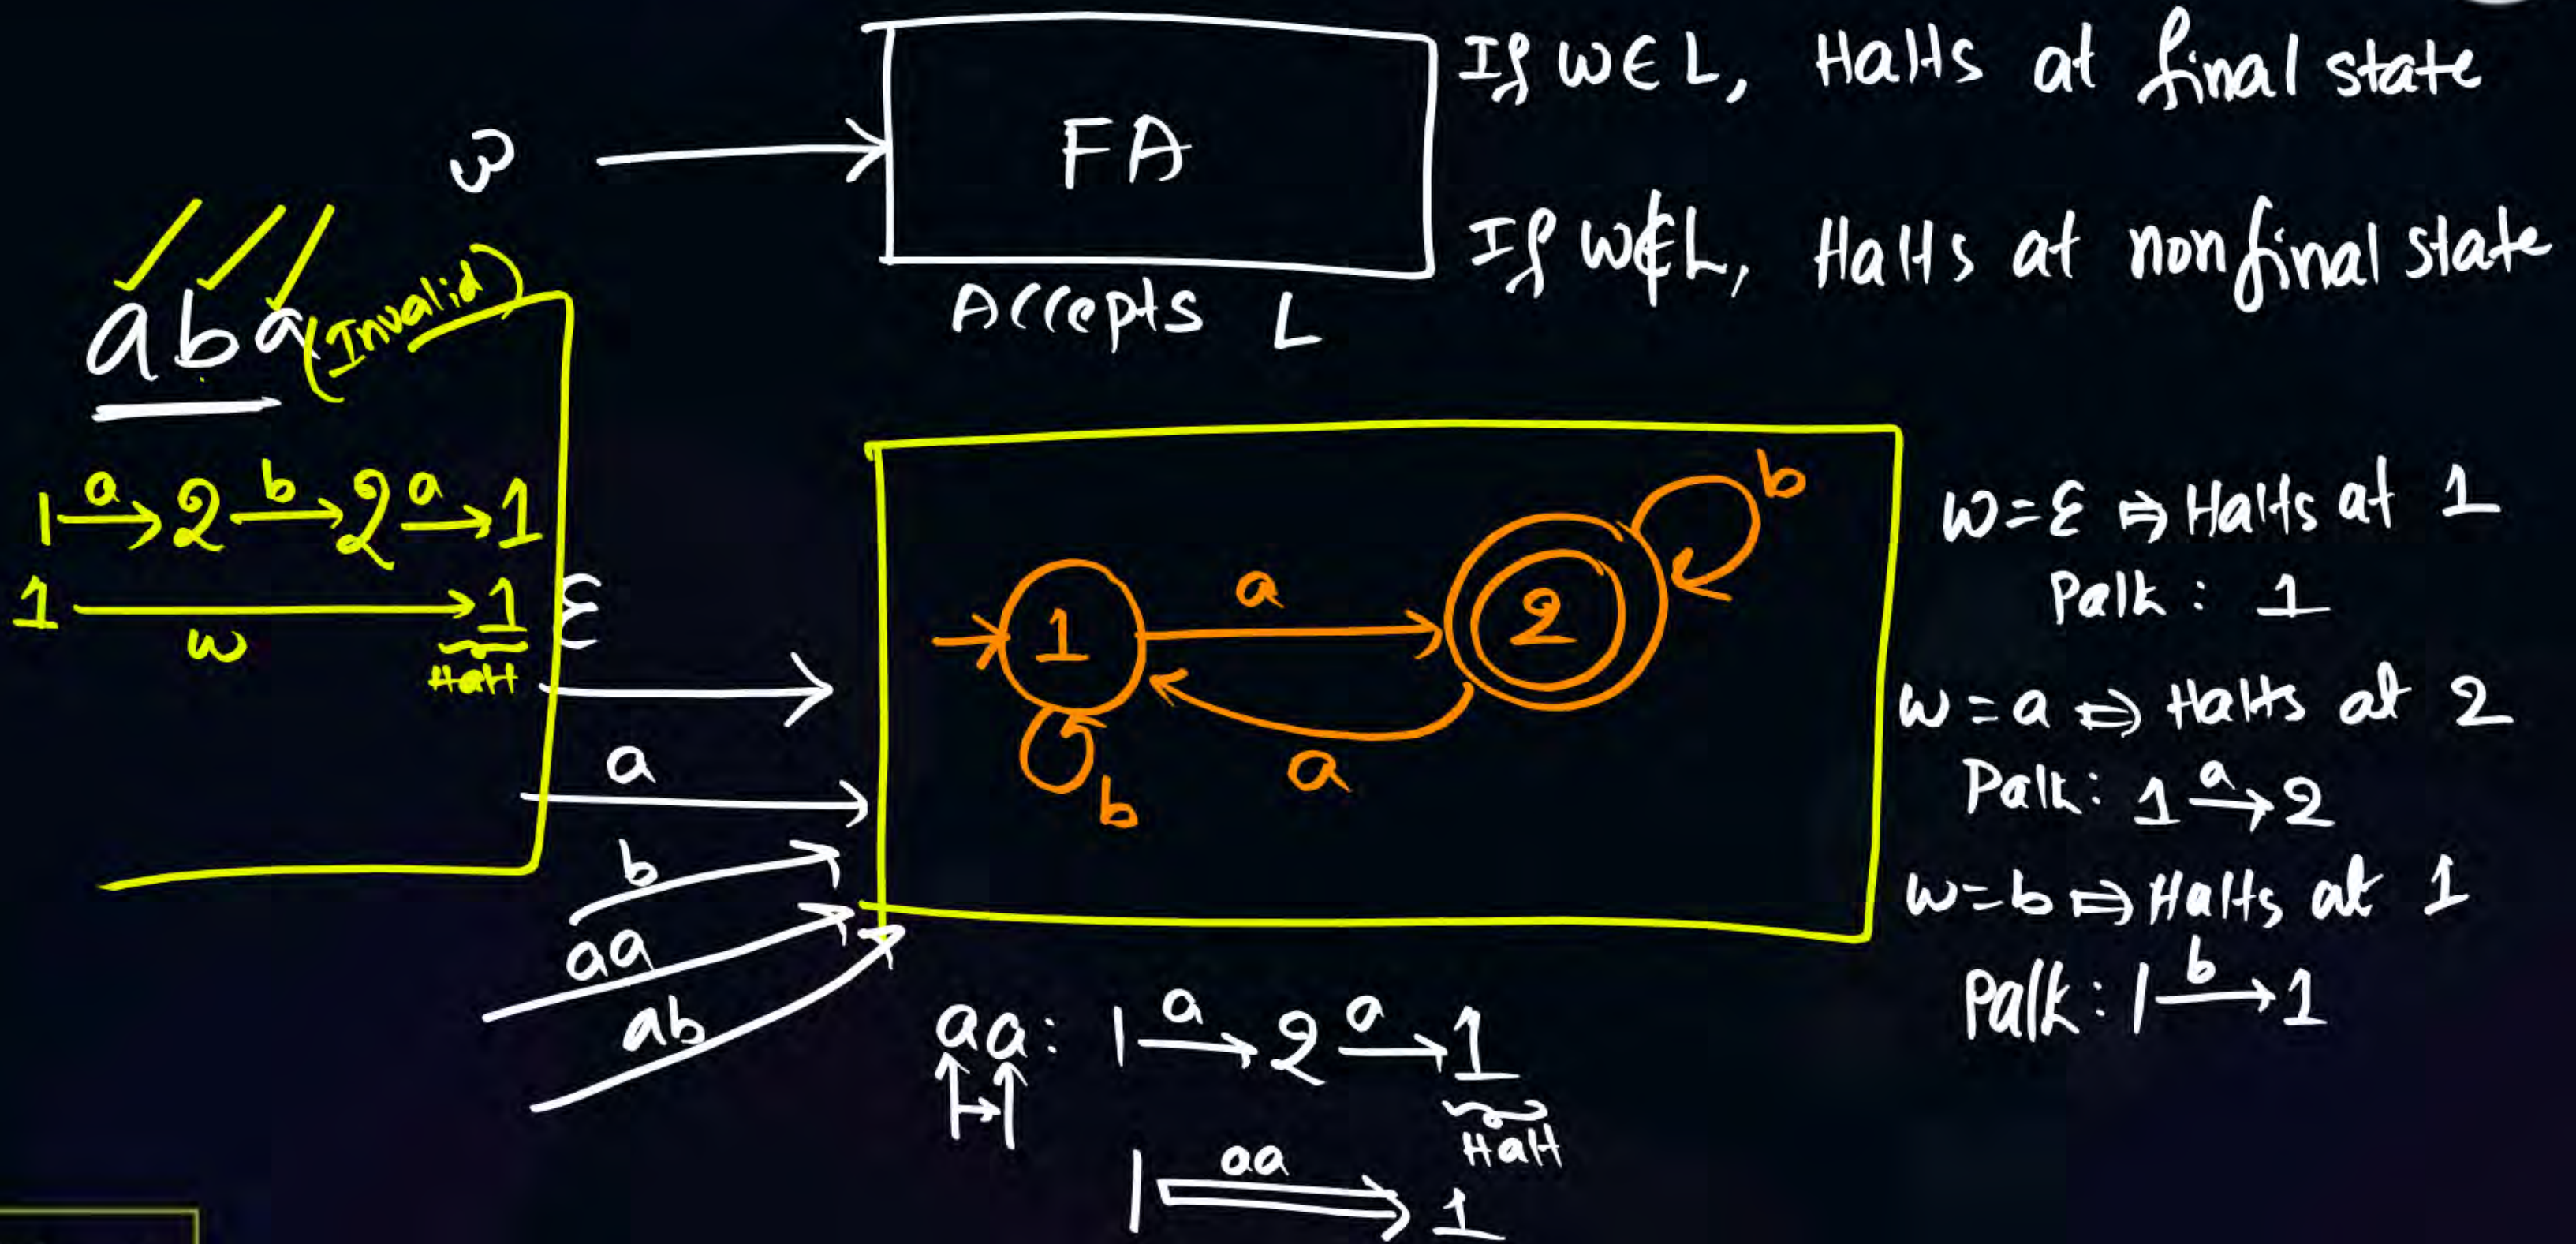 ω
FA
Accepts L
If w∈L, Halts at final state
If w∉L, Halts at nonfinal state
aba (Invalid)
1 a→ 2 b→ 2 a→ 1
1 w→ 1
Halt
ε
a
b
aa
ab
1
a
2
b
a
b
w=ε ⇒ Halts at 1
Path: 1
w=a ⇒ Halts at 2
Path: 1 a→ 2
w=b ⇒ Halts at 1
Path: 1 b→ 1
aa: 1 a→ 2 a→ 1
Halt
1 aa⇒ 1